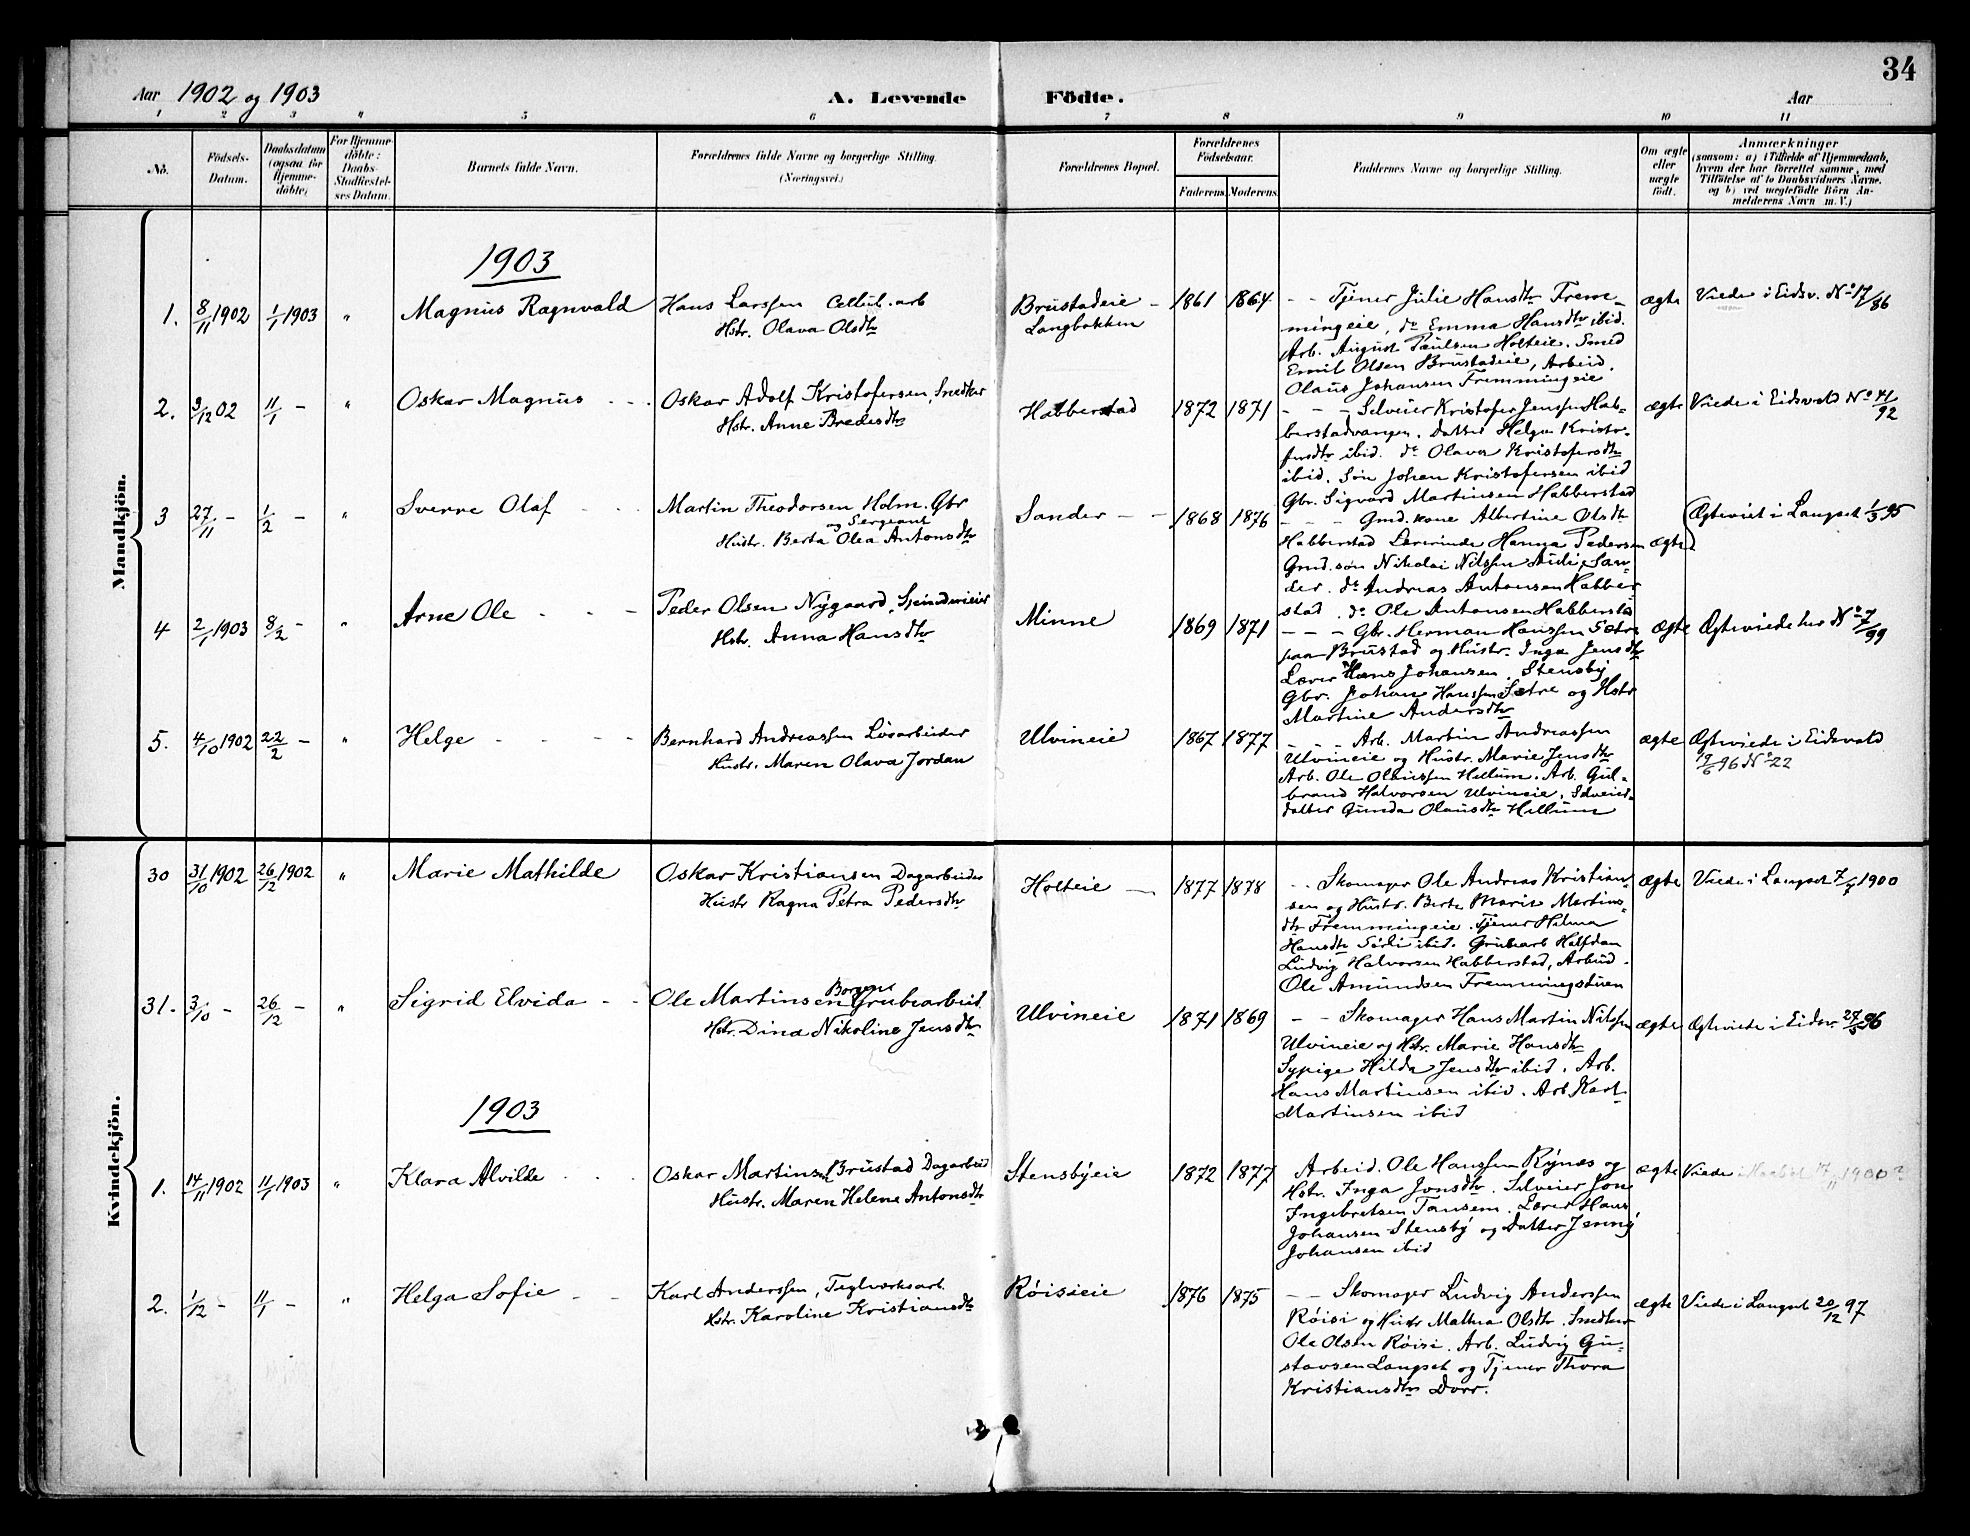 34
Aar 1902 og 1903
A. Levende Födte.
Aar
1 2 3 4 5 6 7 8 9 10 11
No.
Födsels-
Datum.
Daabsdatum
(ogsaa for
Hjemme-
döbte)
For Hjemme-
döbte:
Daabs-
Stadfæstel-
ses Datum.
Barnets fulde Navn.
Forældrenes fulde Navne og borgerlige Stilling.
(Næringsvei.)
Forældrenes Bopæl.
Forældrenes
Födselsaar.
Faderens. Moderens.
Faddernes Navne og borgerlige Stilling.
Om ægte
eller
uægte
födt.
Anmærkninger
(saasom: a) i Tilfælde af Hjemmedaab,
hvem der har forrettet samme, med
Tilföielse af to Daabsvidners Navne.
og b) ved uægtefödte Börn An-
melderens Navn m. V.)
Mandkjön.
1903
1. 8/11 1902 1/1 1903 " Magnus Ragnvald
Hans Larssen Cellul. arb
Hstr. Olava Olsdtr
Brustadeie
Langbakken
1861 1864
Tjener Julie Hansdtr Frem-
mingeie, do Emma Hansdtr ibid.
Arb. August Paulsen Holteie. Smed
Emil Olsen Brustadeie, Arbeid.
Olaus Johansen Fremmingeie
ægte
Viede i Eidsv. No 17/86
2. 3/12 02 11/1 - " Oskar Magnus
Oskar Adolf Kristofersen, Snedker
Hstr. Anne Bredesdtr
Habberstad
1872 1871
Selveier Kristofer Jenssen Hab-
berstadvangen. Datter Helga Kristo-
fersdtr ibid. do Olava Kristofersdtr
ibid. Søn Johan Kristofersen ibid
Gbr. Sigvard Martinsen Habberstad
ægte
Viede i Eidsvold No 41/92
3 27/11 - 1/2 - " Sverre Olaf
Martin Theodorsen Holm. Gbr
og Sergeant
Hustr. Berta Olea Antonsdtr
Sander
1868 1876
Gmd. kone Albertine Olsdtr
Habberstad Lærerinde Hanna Pedersen
Gmd. søn Nikolai Nilssen San-
der. do Andreas Antonsen Habber-
stad. do Ole Antonsen Habbersta
ægte
Ægteviet i Langset 1/3 95
4 2/1 1903 8/2 - " Arne Ole
Peder Olsen Nygaard,
Hstr. Anna Hansdtr
Minne
1869 1871
Gbr. Herman Hanssen Sætre
paa Brustad og Hustr. Inga Jensdtr
Lærer Hans Johansen. Stensby
Gbr. Johan Hanssen Sætre og Hstr
Martine Andersdtr
ægte
Ægteviede her No 7/99
5. 4/10 1902 22/2 - " Helge
Bernhard Andreassen Løsarbeider
Hustr. Maren Olava Jordan
Ulvineie
1867 1877
Arb. Martin Andreassen
Ulvineie og Hustr. Marie Jensdtr
Arb. Ole Hellum. Arb. Gul-
brand Halvorsen Ulvineie. Selveier-
datter Gunda Olausdtr Hellum
ægte
Ægteviede i Eidsvold
19/6 96 No 22
Kvindekjön.
30 31/10 1902 26/12 1902 " Marie Mathilde
Oskar Kristiansen Dagarbeider
Hustr Ragna Petra Pedersdtr
Holteie
1877 1878
Skomager Ole Andreas Kristian-
sen og Hustr. Berte Marie Martins-
dtr Fremmingeie. Tjener Helma
Hansdtr ibid. Grubearb Halfdan
Ludvig Halvorsen Habberstad, Arbeid.
Ole Amundsen Fremmingstuen
ægte
Viede i Langset 1900
31. 3/10 - 26/12 - " Sigrid Elvida
Ole Martinsen Borgen Grubearbeid.
Hstr. Dina Nikoline Jensdtr
Ulvineie
1871 1869
Skomager Hans Martin Nilssen
Ulvineie og Hstr. Marie Hansdtr
Sypige Hilda Jensdtr ibid. Arb.
Hans Martinsen ibid. Arb Karl
Martinsen ibid
ægte
Ægteviede i Eidsv. 27/5 96
1903
1. 14/11 1902 11/1 1903 " Klara Alvilde
Oskar Martinsen Brustad Dagarbeid
Hustr. Maren Helene Antonsdtr
Stensbyeie
1872 1877
Arbeid. Ole Hanssen Rynæs og
Hstr. Inga Jonsdtr. Selveier Jon
Ingebretsen Tansem. Lærer Hans
Johansen Stensby og Datter Jenny
Johansen ibid
ægte
Viede 1900?
2. 1/12 - 11/1 - " Helga Sofie
Karl Anderssen, Teglværksarb.
Hstr. Karoline Kristiansdtr
Røisieie
1876 1875
Skomager Ludvig Anderssen
Røisi og Hustr Mathea Olsdtr. Snedker
Ole Olsen Røisi. Arb. Ludvig Gu-
stavsen Langset og Tjener Thora
Kristiansdtr Dorr.
ægte
Viede i Langset 20/12 97